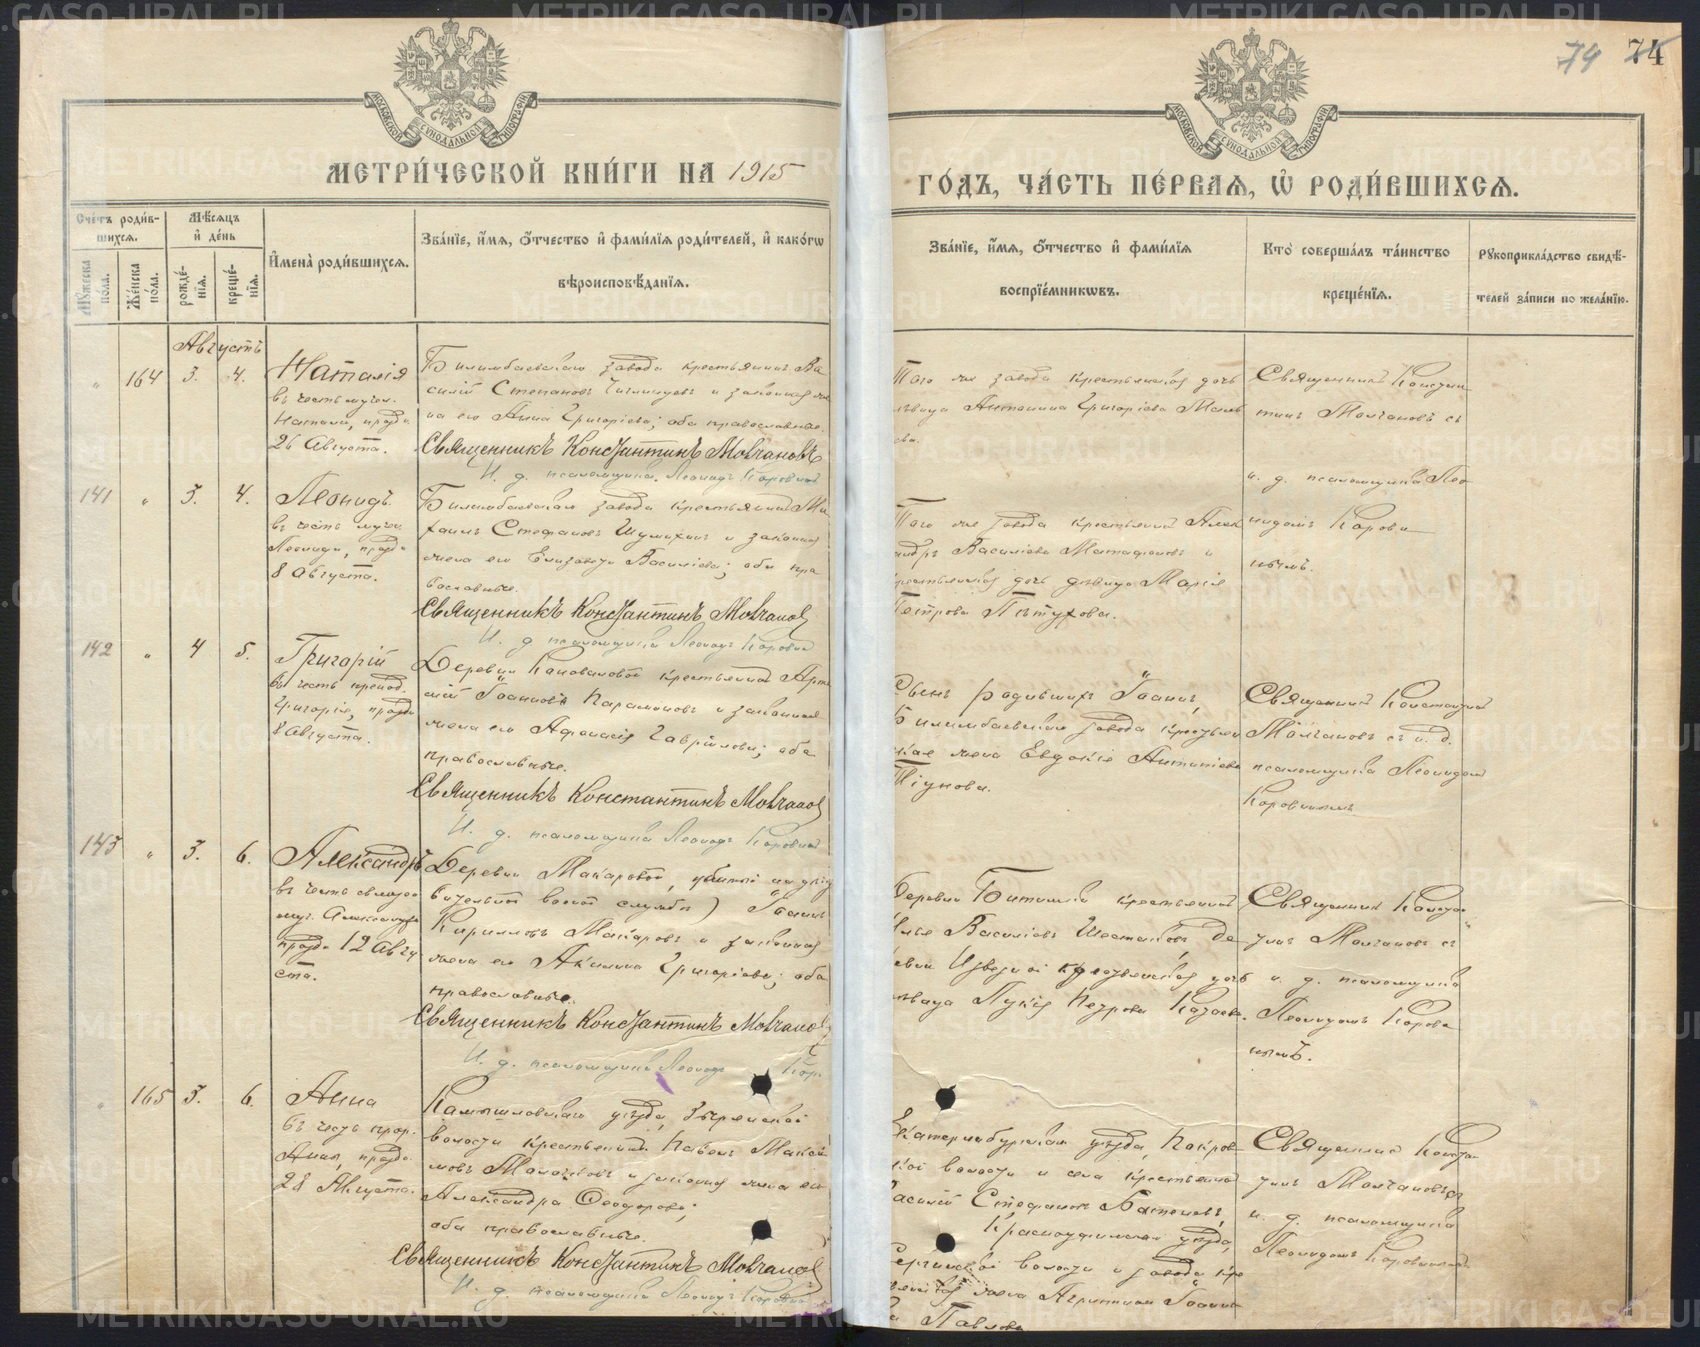 74 74
МЕТРИ́ЧЕСКОЙ КНИ́ГИ НА 1915
ГО́ДЪ, ЧА́СТЬ ПЕ́РВАЯ, Ѡ҆ РОДИ́ВШИХСѦ.
Сче́тъ роди́в-
шихсѧ.
Мꙋжеска
по́ла.
Же́нска
по́ла.
Мѣ́сѧцъ
и҆ де́нь
рожде́-
нїѧ.
креще́-
нїѧ.
И҆мена̀ роди́вшихсѧ.
Зва́нїе, и҆́мѧ, о҆́тчество и҆ фами́лїѧ роди́телей, и҆ како́гѡ
вѣроисповѣ́данїѧ.
Зва́нїе, и҆́мѧ, о҆́тчество и҆ фами́лїѧ
воспрїе́мникѡвъ.
Кто̀ соверша́лъ та́инство
креще́нїѧ.
Рꙋкоприкла́дство свидѣ́-
телей за́писи по жела́нїю.
Августъ
" 164 3. 4. Наталія
въ честь мучен.
Наталіи, празд.
26 Августа.
Билимбаевскаго завода крестьянинъ Ва
силій Степановъ и законная же
на его Анна Григорьева; оба православные.
Священникъ Константинъ Молчановъ
И. д. псаломщика Леонидъ Коровинъ
Того же завода крестьянская дочь
дѣвица Антонина Григорьева
Священникъ Констан
тинъ Молчановъ съ
и. д. псаломщика Лео
нидомъ Корови
нымъ.
141 " 3. 4. Леонидъ
въ честь мучен.
Леонида, празд.
8 Августа.
Билимбаевскаго завода крестьянинъ Ми
хаилъ Стефановъ Шумихинъ и законная
жена его Елизавета Василіева; оба пра
вославные.
Священникъ Константинъ Молчановъ
И. д. псаломщика Леонидъ Коровинъ
Того же завода крестьянинъ Алек
андръ Василіевъ и
крестьянская дочь дѣвица Марія
Петрова Пѣтухова.
142 " 4 5. Григорій
въ честь препод.
Григорія, празд.
8 Августа.
Деревни Коноваловой крестьянинъ Арте
мій Іоанновъ Парамоновъ и законная
жена его Афанасія Гаврілова; оба
православные.
Священникъ Константинъ Молчановъ
И. д. псаломщика Леонидъ Коровинъ
Сынъ родившихъ Іоаннъ,
Билимбаевскаго завода крестьян
ская жена Евдокія Антипіева
Тіунова.
Священникъ Константинъ
Молчановъ съ и. д.
псаломщика Леонидомъ
Коровинымъ
143 " 3. 6. Александръ
въ честь священно
муч. Александра
празд. 12 Авгу
ста.
Деревни Макаровой, убитый на дѣй
вительной военной службѣ) Іоаннъ
Кирилловъ Макаровъ и законная
жена его Акилина Григоріева; оба
православные.
Священникъ Константинъ Молчановъ
И. д. псаломщика Леонидъ Кор
Деревни Битимки крестьянинъ
Илья Василіевъ Шестаковъ де
евни Извезной крестьянская дочь
дѣвица Лукія Петрова Казаева.
Священникъ Конста
тинъ Молчановъ съ
и. д. псаломщика
Леонидомъ Корови
нымъ.
" 165 3. 6. Анна
въ честь прор.
Анны, празд.
28 Августа.
Камышловскаго уѣзда, Зырянской
волости крестьянинъ Павелъ Макси
мовъ и законная жена его
Александра Ѳеодорова;
оба православные.
Священникъ Константинъ Молчановъ
И. д. псаломщика Леонидъ Коровинъ
Екатеринбургскаго уѣзда, Покров
ской волости и села крестьянинъ
Василій Стефановъ
Красноуфимскаго уѣзда,
Сергинской волости и завода кре
тьянская жена Агриппина Іоанно
ва Павлова
Священникъ Конста
тинъ Молчановъ съ
и. д. псаломщика
Леонидомъ Коровинымъ
METRIKI.GASO-URAL.RU